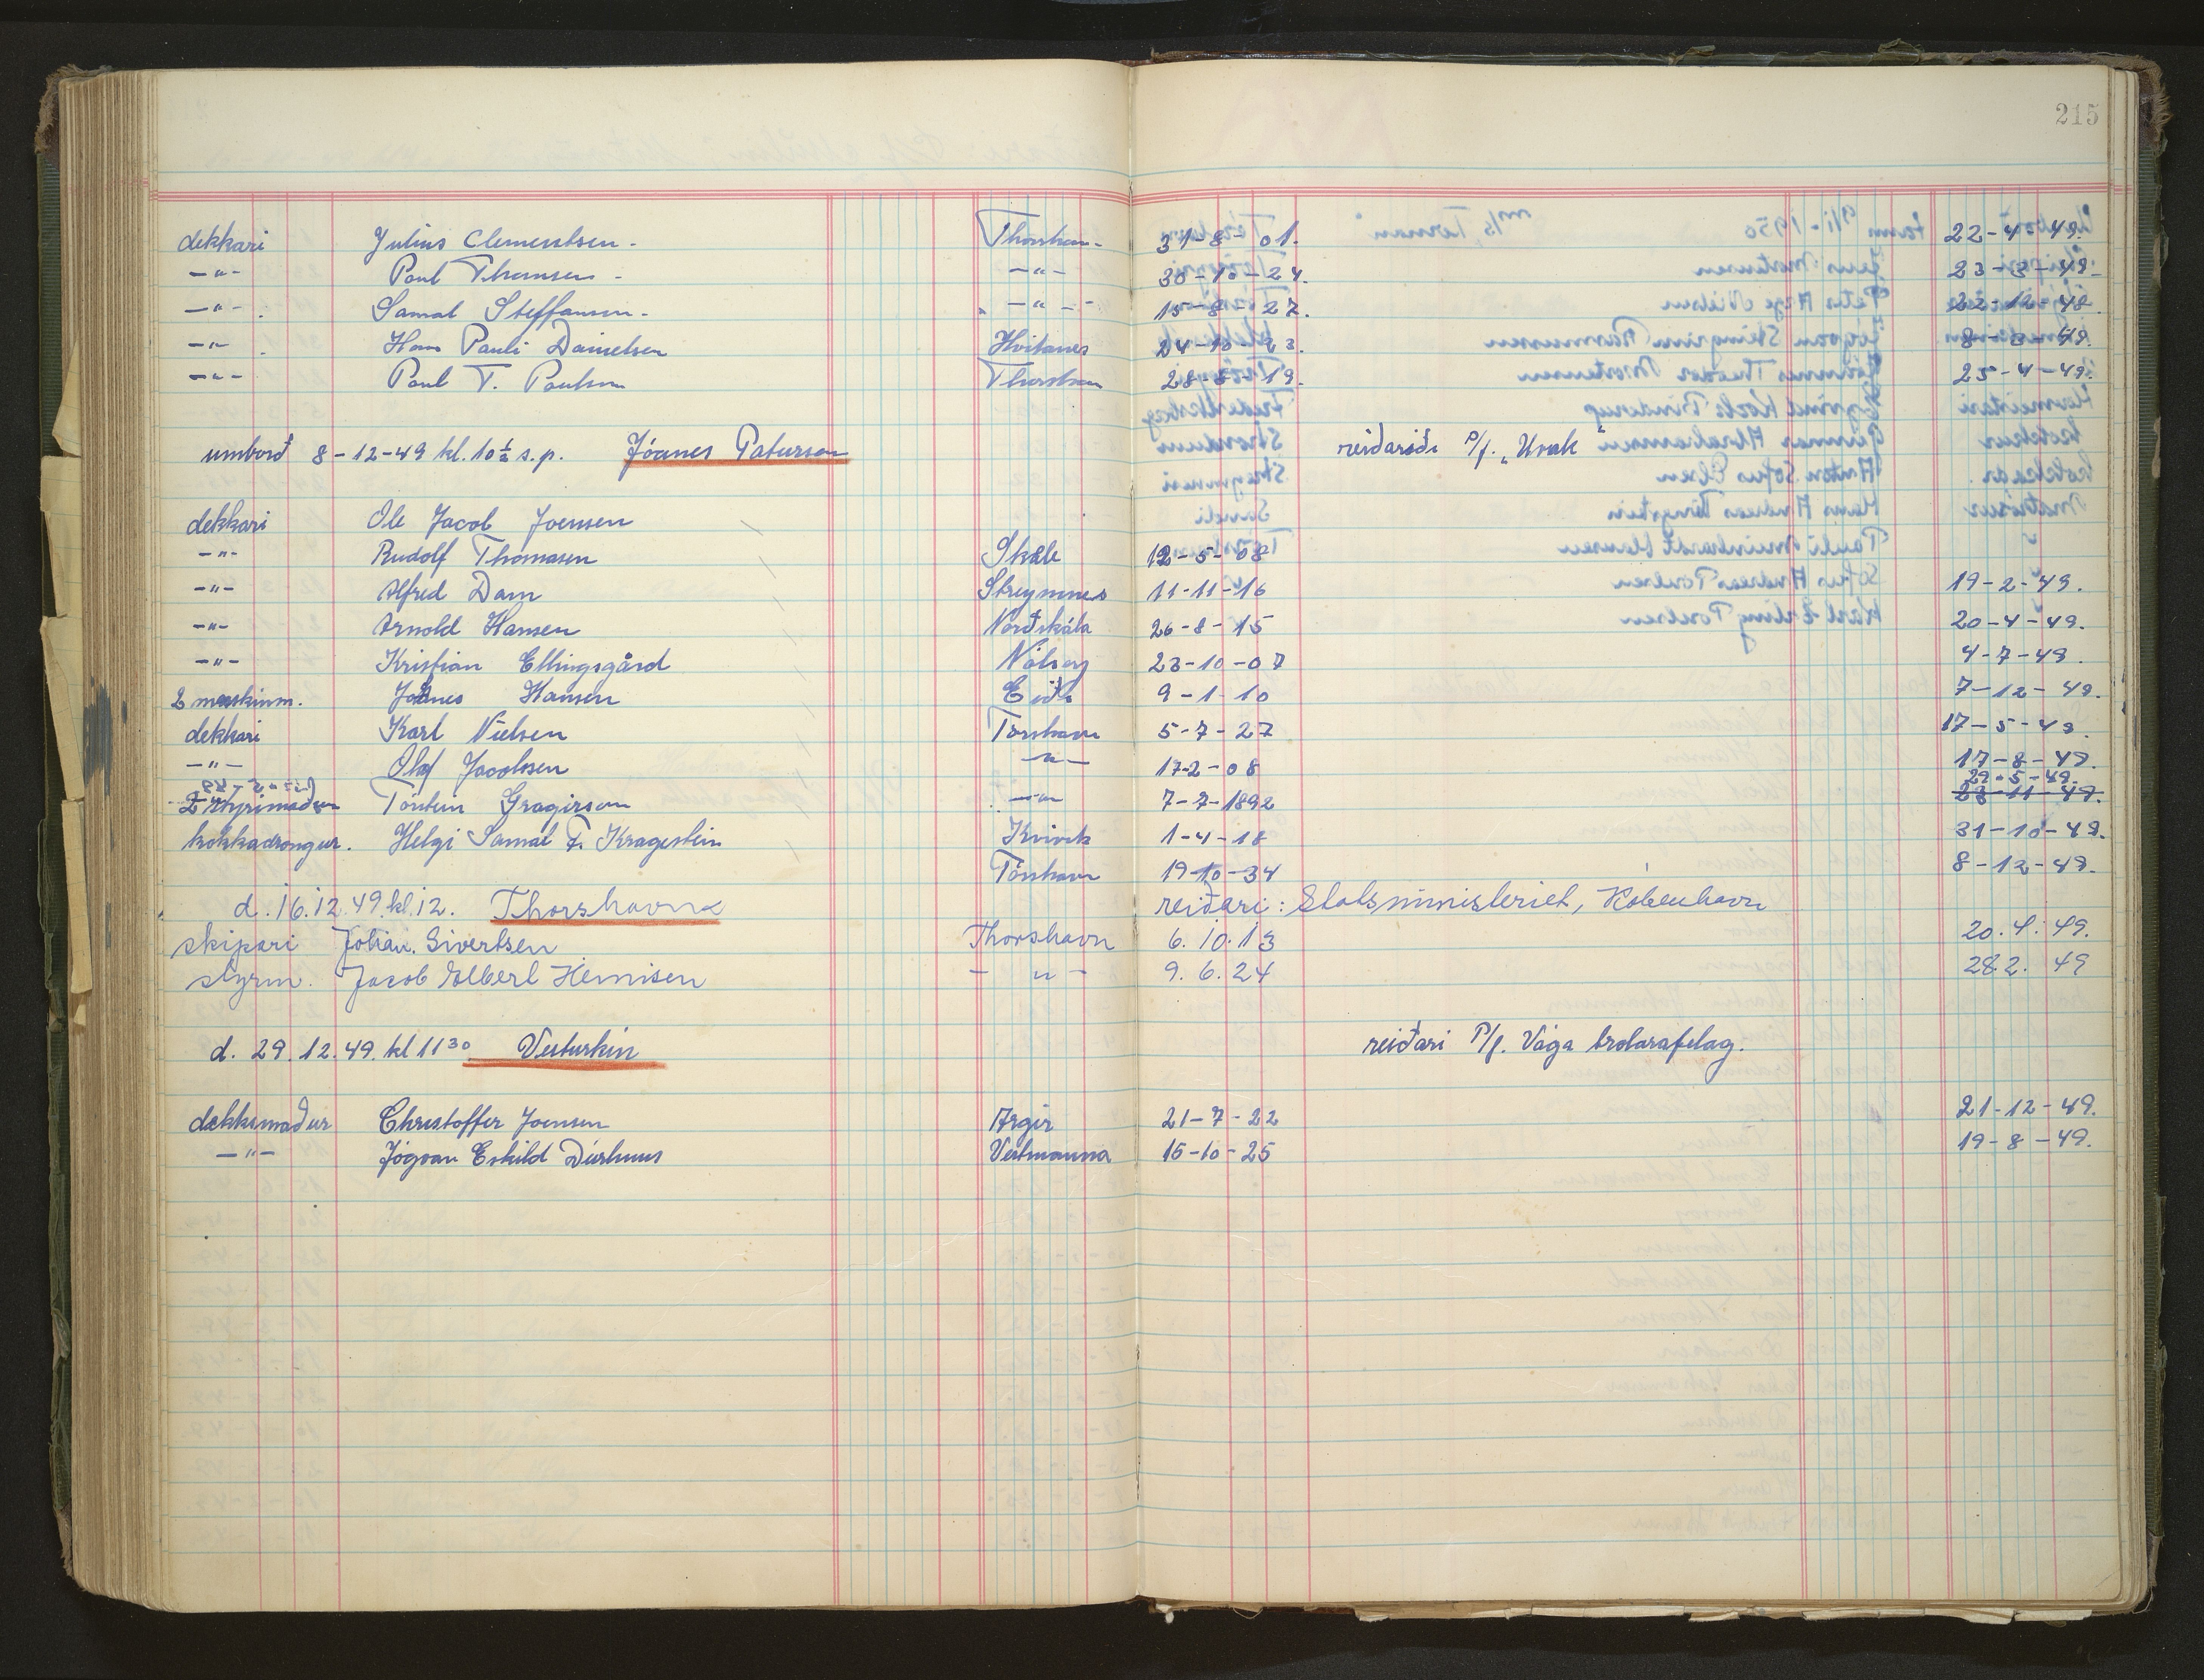 215
dekkari Julius Clementsen - Thorshavn - 31-8-01. 22-4-49.
-"- Poul Thomsen - -"- 30-10-24. 23-3-49.
-"- Samal Steffansen - -"- 15-8-27. 22-12-48
-"- Hans Pauli Danielsen Hvitanes 24-10-23. 8-3-49.
-"- Poul T. Poulsen Thorshavn 28-8-19. 25-4-49.
umborð 8-12-49 kl. 10½ s.p. Jóanes Patursson reiðaríði P/f. „Urak"
dekkari Ole Jacob Joensen
-"- Rudolf Thomasen Skále 12-5-08
-"- Alfred Dam Streymnes 11-11-16 19-2-49.
-"- Arnold Hansen Norðskála 26-8-15 20-4-49.
-"- Kristian Ellingsgård Nólsoy 23-10-07 4-7-49.
2 maskinm. Johnes Hansen Eiði 9-1-10 7-12-49.
dekkari Karl Nielsen Tórshavn 5-7-27 17-5-49.
-"- Olaf Jacobsen -"- 17-2-08 17-8-49.
29-5-49.
2 stýrimaður Tórstein Gragirson -"- 7-7-1892 23-11-49.
kokkadrongur. Helgi Samal F. Kragestein Kvivik 1-4-18 31-10-49.
Tórshavn 19-10-34 8-12-49.
d. 16.12.49. kl. 12. Thorshavn reiðari: Statsministeriet, København
skipari Johan. Sivertsen Thorshavn 6.10.13 20.4.49.
styrm. Jacob Elbert Heinisen - " - 9.6.24 28.2.49
d. 29.12.49. kl 11³⁰ Vesturkin reiðari P/f. Vága trolarafelag.
dekksmaður Christoffer Joensen Argir 21-7-22 21-12-49.
-"- Jógvan Eskild Díurhuus Vestmanna 15-10-25 19-8-49.